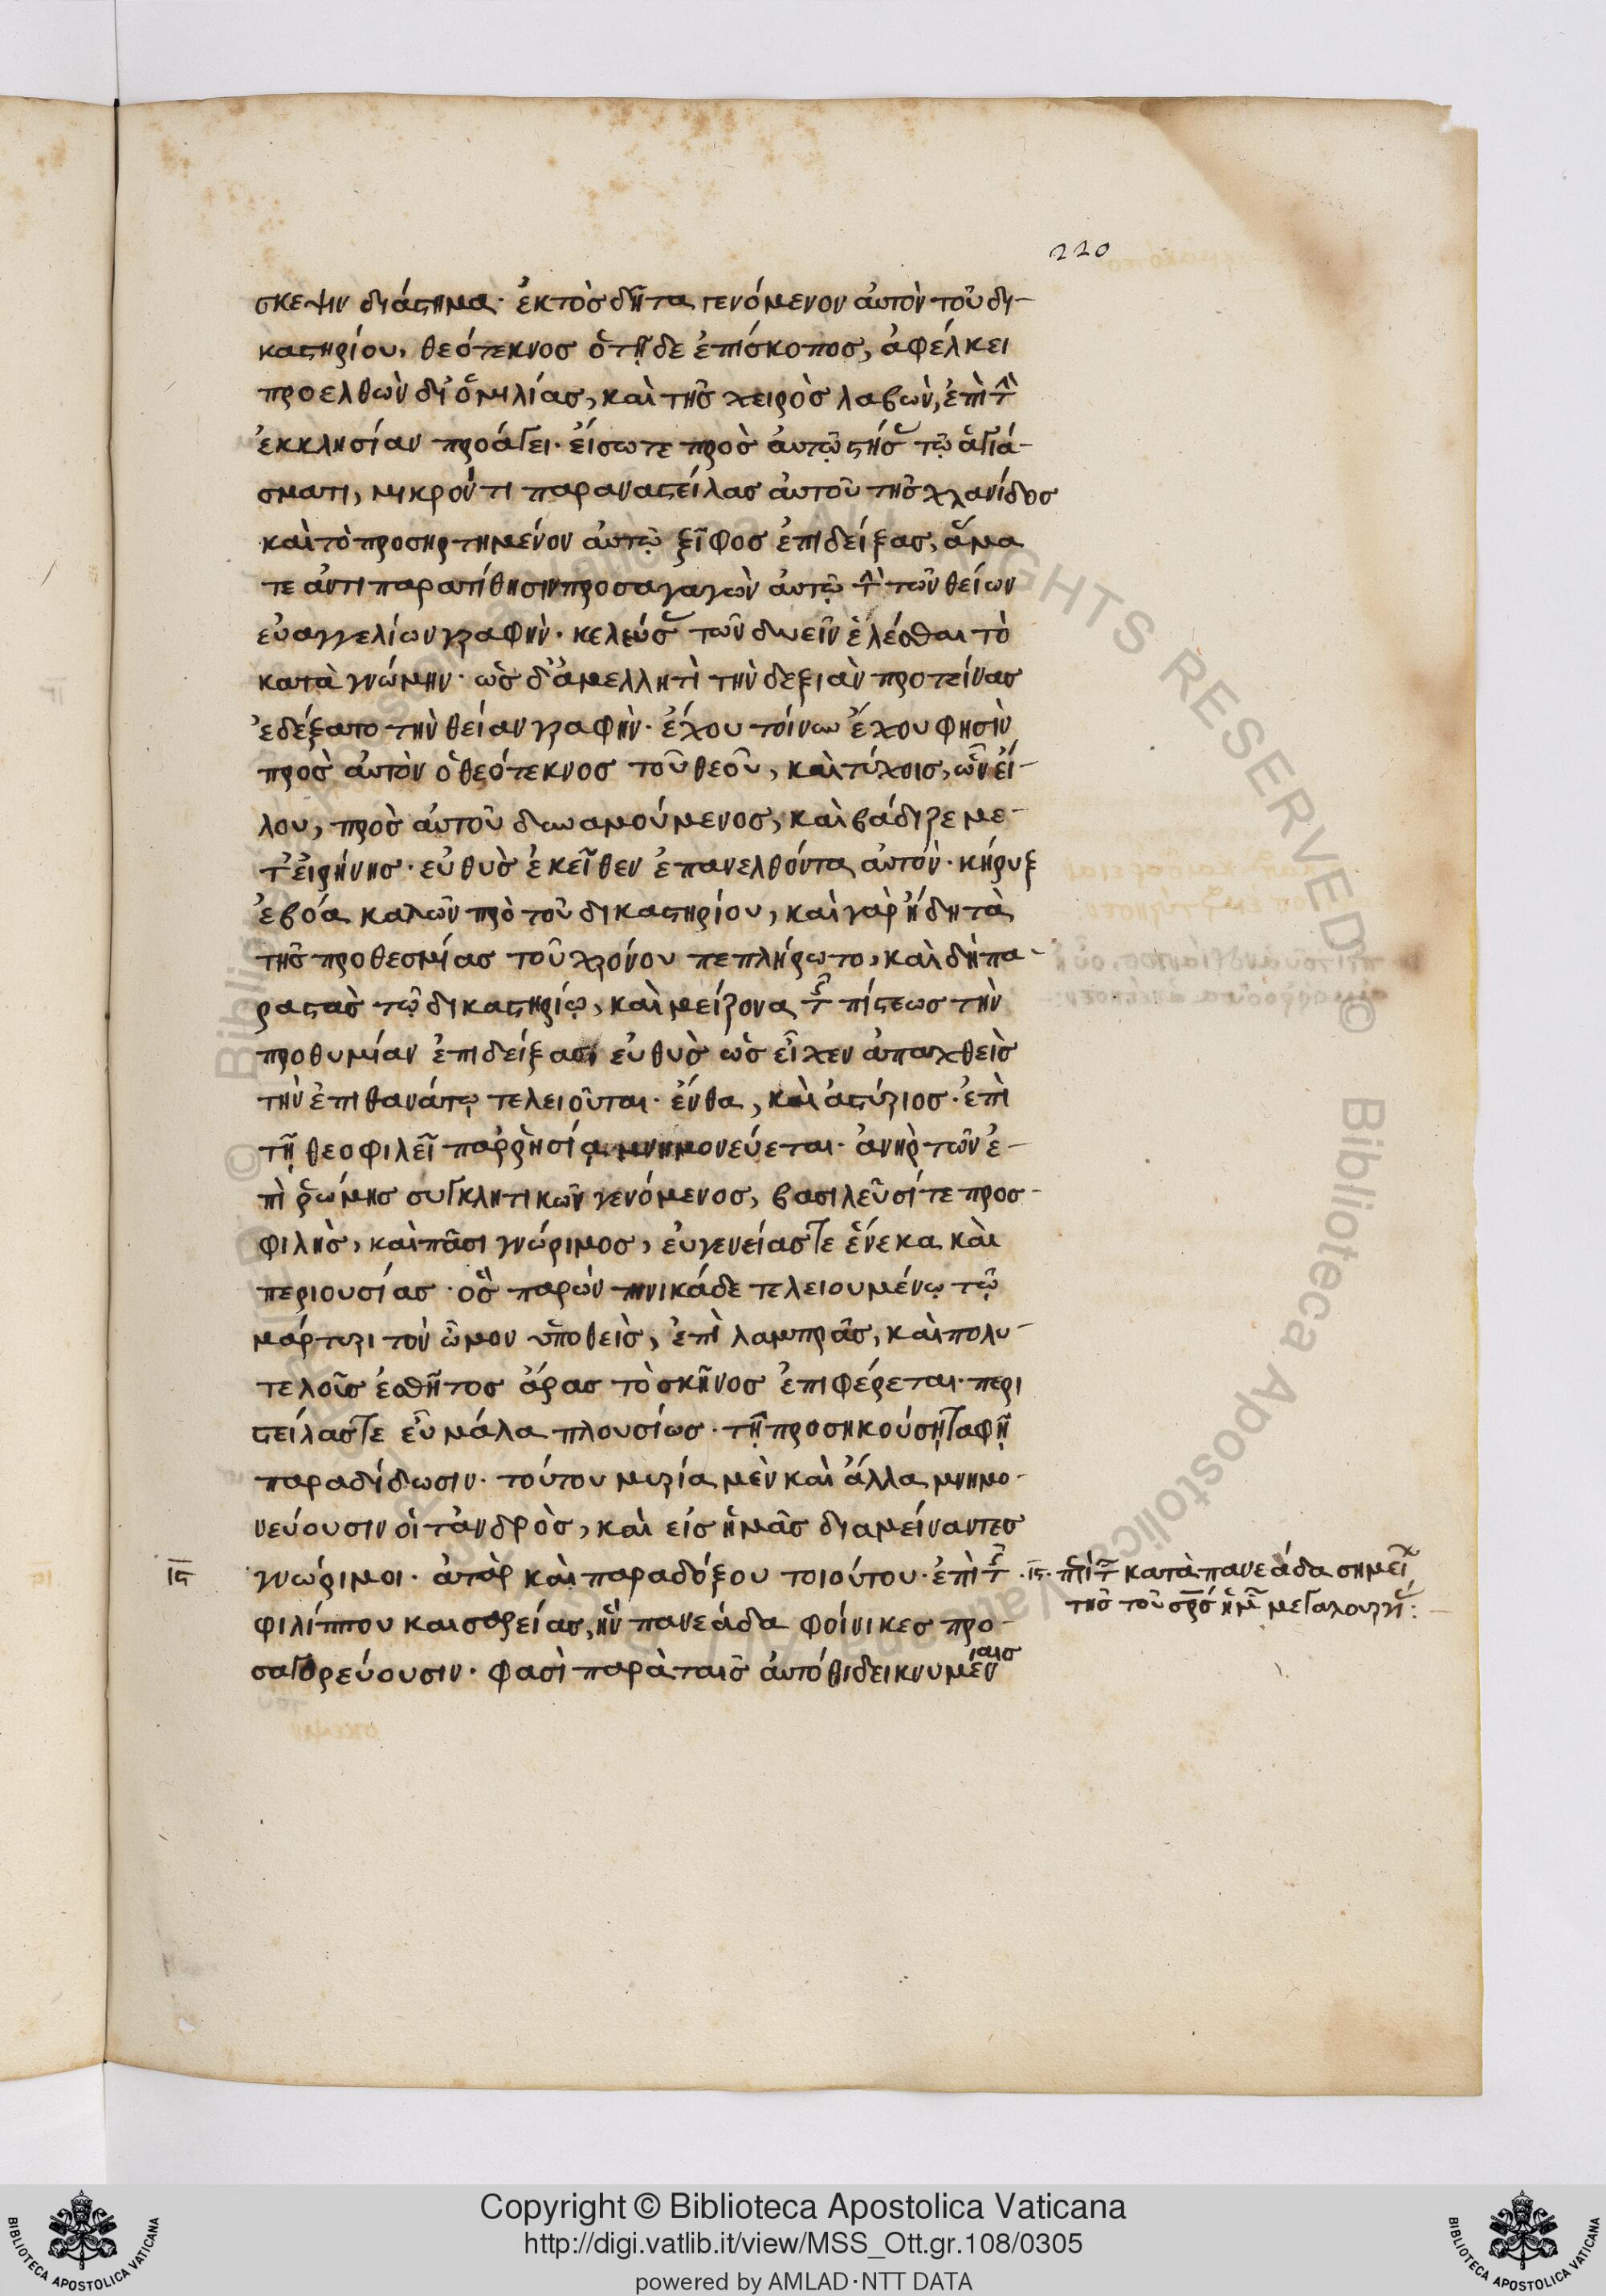 220
σκεψιν διάστημα· ἐκτὸς δῆτα γενόμενον αὐτὸν τοῦ δι-
καστηρίου, θεότεκνος ὁ τῇδε ἐπίσκοπος, ἀφέλκει
προελθὼν δι' ὁμιλίας, καὶ τῆς χειρὸς λαβὼν, ἐπὶ τὴν
ἐκκλησίαν προάγει· εἴσω τε πρὸς αὐτῷ στήσας τῷ ἁγιά-
σματι, μικρόν τι παραναστείλας αὐτοῦ τῆς χλανίδος
καὶ τὸ προσηρτημένον αὐτῷ ξῖφος ἐπιδείξας, ἅμα
τε ἀντιπαρατίθησιν προσαγαγὼν αὐτῷ τὴν τῶν θείων
εὐαγγελίων γραφὴν· κελεύσας τῶν δυεῖν ἑλέσθαι τὸ
κατὰ γνώμην· ὡς δ' ἀμελλητὶ τὴν δεξιὰν προτείνας
ἐδέξατο τὴν θείαν γραφὴν· ἔχου τοίνυν ἔχου φησὶν
πρὸς αὐτὸν ὁ θεότεκνος τοῦ θεοῦ, καὶ τύχοις, ὧν εἵ-
λου, πρὸς αὐτοῦ δυναμούμενος, καὶ βάδιζε με-
τ' εἰρήνης· εὐθὺς ἐκεῖθεν ἐπανελθόντα αὐτὸν· κήρυξ
ἐβόα καλῶν πρὸ τοῦ δικαστηρίου, καὶ γὰρ ἤδη τὰ
τῆς προθεσμίας τοῦ χρόνου πεπλήρωτο, καὶ δὴ πα-
ραστὰς τῷ δικαστηρίῳ, καὶ μείζονα τῆς πίστεως τὴν
προθυμίαν ἐπιδείξας, εὐθὺς ὡς εἶχεν ἀπαχθεὶς
τὴν ἐπὶ θανάτῳ τελειοῦται· ἔνθα, καὶ ἀστύριος· ἐπὶ
τῇ θεοφιλεῖ παῤῥησίᾳ μνημονεύεται· ἀνὴρ τῶν ἐ-
πὶ ῥώμης συγκλητικῶν γενόμενος, βασιλεῦσί τε προσ-
φιλὴς, καὶ πᾶσι γνώριμος, εὐγενείας τε ἕνεκα καὶ
περιουσίας· ὃς παρὼν τηνικάδε τελειουμένῳ τῷ
μάρτυρι τὸν ὦμον ὑποθεὶς, ἐπὶ λαμπρᾶς, καὶ πολυ-
τελοῦς ἐσθῆτος ἄρας τὸ σκῆνος ἐπιφέρεται· περι
στείλας τε εὖ μάλα πλουσίως· τῇ προσηκούσῃ ταφῇ
παραδίδωσιν· τούτου μυρία μὲν καὶ ἄλλα μνημο-
νεύουσιν οἱ τἀνδρὸς, καὶ εἰς ἡμᾶς διαμείναντες
ις γνώριμοι· ἀτὰρ καὶ παραδόξου τοιούτου· ἐπὶ τῆς
φιλίππου καισαρείας, ἣν πανεάδα φοίνικες προ-
σαγορεύουσιν· φασὶ παρὰ ταῖς αὐτόθι δεικνυμέναις
·ις· περὶ τῶν κατὰ πανεάδα σημείων
τῆς τοῦ σρς ἡμῶν μεγαλουργίας:
Copyright © Biblioteca Apostolica Vaticana
http://digi.vatlib.it/view/MSS_Ott.gr.108/0305
powered by AMLAD·NTT DATA
BIBLIOTECA APOSTOLICA VATICANA
BIBLIOTECA APOSTOLICA VATICANA